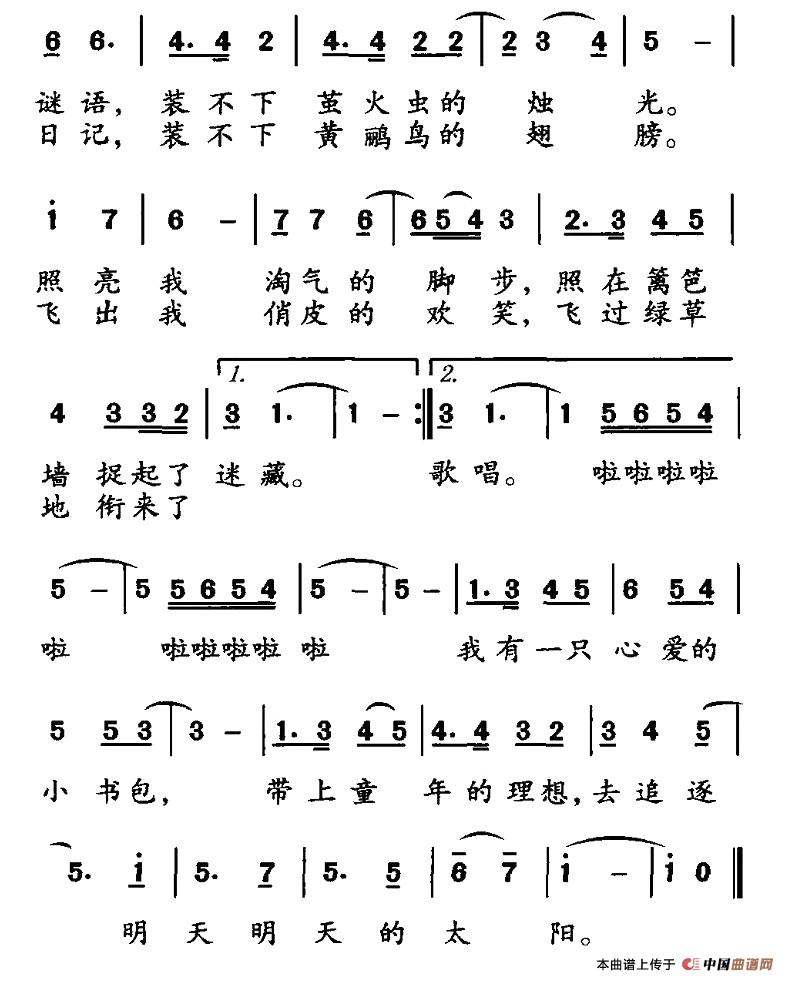 6 6. | 4. 4 2 | 4. 4 2 2 | 2 3 4 | 5 – |
谜语，装不下 萤火虫的 烛 光。
日记，装不下 黄鹂鸟的 翅 膀。
1 7 | 6 – | 7 7 6 | 6 5 4 3 | 2. 3 4 5 |
照亮我 淘气的 脚 步，照在篱笆
飞出我 俏皮的 欢 笑，飞过绿草
1. 2.
4 3 3 2 | 3 1. | 1 – :‖ 3 1. | 1 5 6 5 4 |
墙 捉起了 迷藏。 歌唱。 啦啦啦啦
地 衔来了
5 – | 5 5 6 5 4 | 5 – | 5 – | 1. 3 4 5 | 6 5 4 |
啦 啦啦啦啦 啦 我有一只 心爱的
5 5 3 | 3 – | 1. 3 4 5 | 4. 4 3 2 | 3 4 5 |
小 书包， 带上童 年的理想，去追逐
5. 1 | 5. 7 | 5. 5 | 6 7 | 1 – | 1 0 ‖
明天明天的太 阳。
本曲谱上传于 中国曲谱网